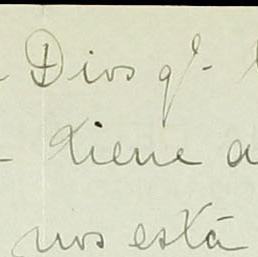 Dios qᵉ-
tiene a
nos está